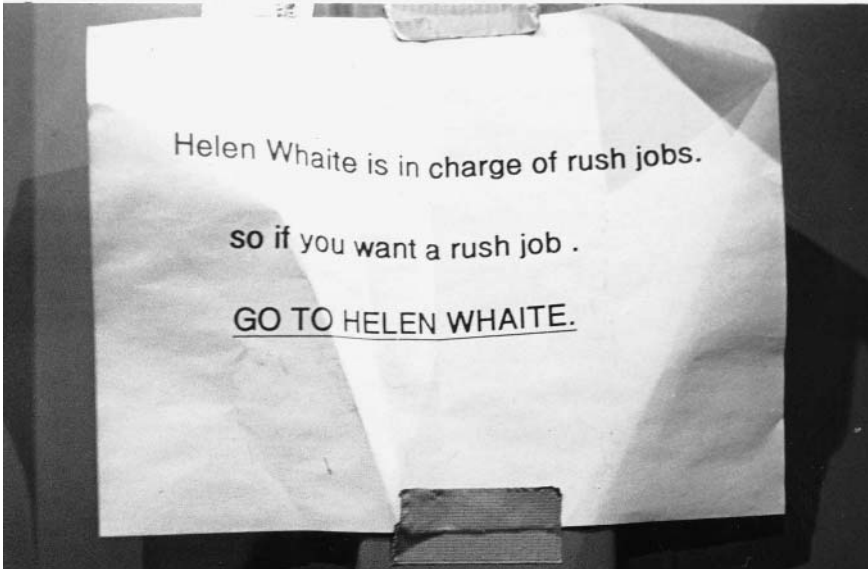 Helen Whaite is in charge of rush jobs.
so if you want a rush job .
GO TO HELEN WHAITE.